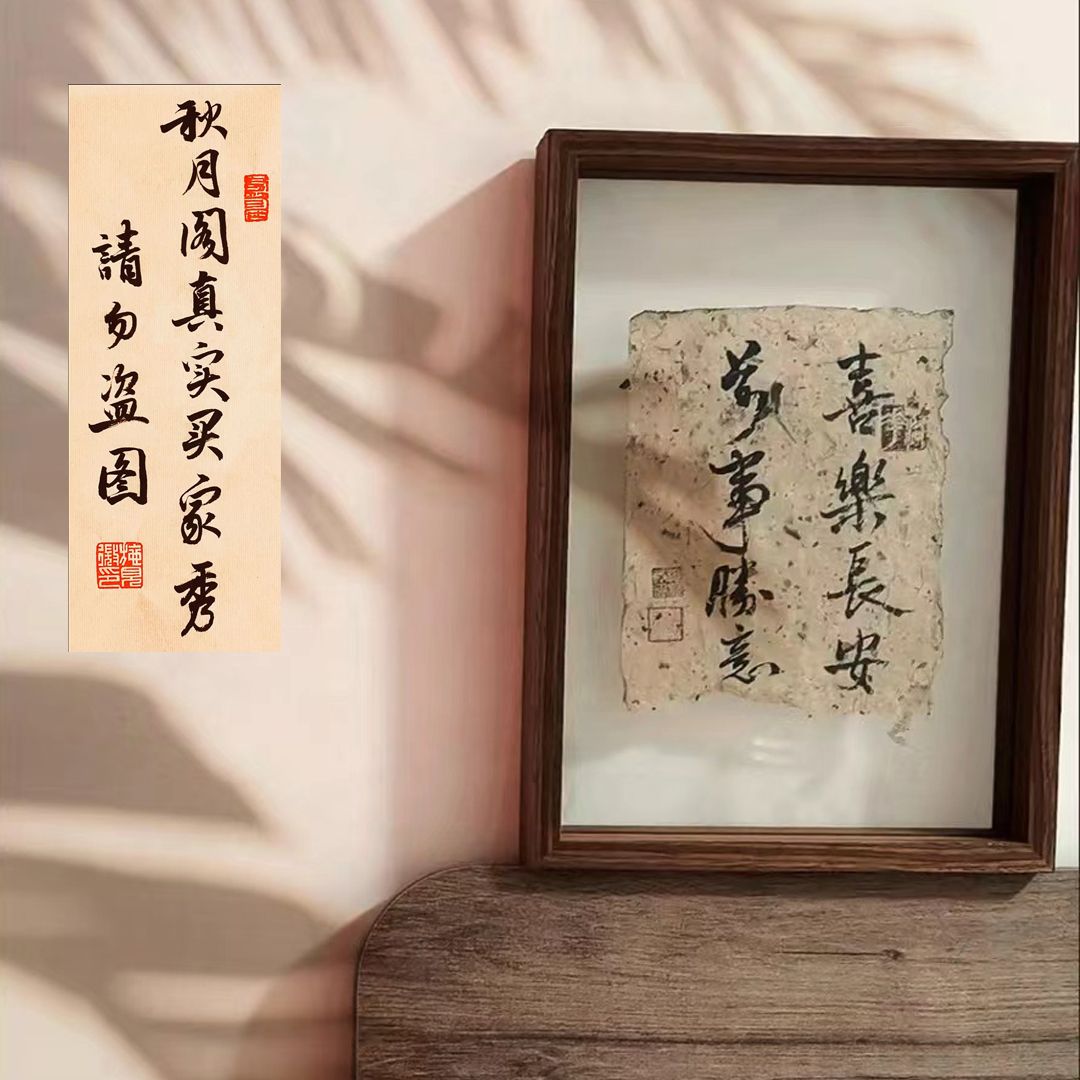 秋月阁真实买家秀
請勿盗图
喜樂長安
万事勝意